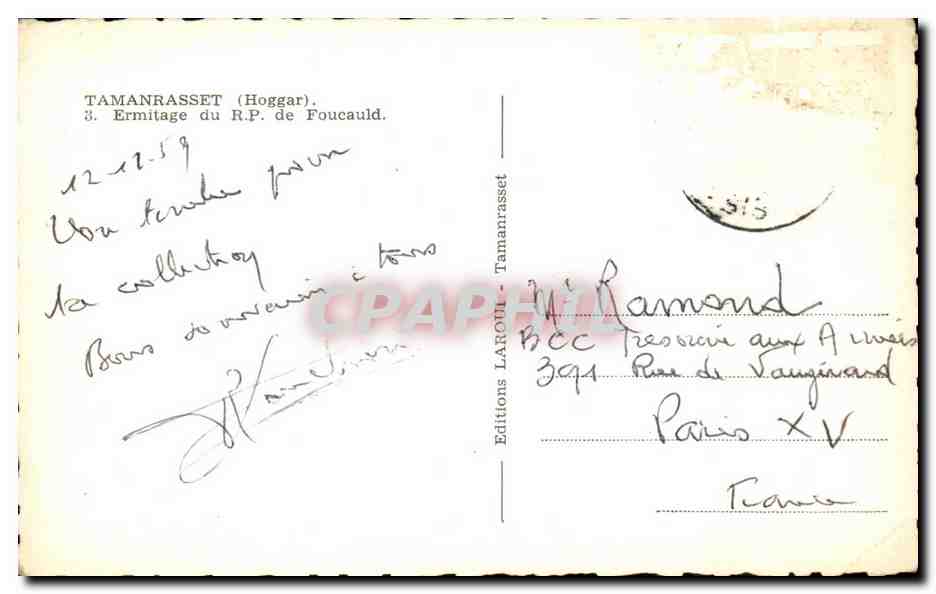 TAMANRASSET (Hoggar).
3. Ermitage du R.P. de Foucauld.
12-12-59
pour
ta collection
Bons souvenirs à tous
Editions LAROUI - Tamanrasset
CPAPHIL
Mr Ramond
BCC Tresorerie aux Armées
391 Rue de Vaugirard
Paris XV
France